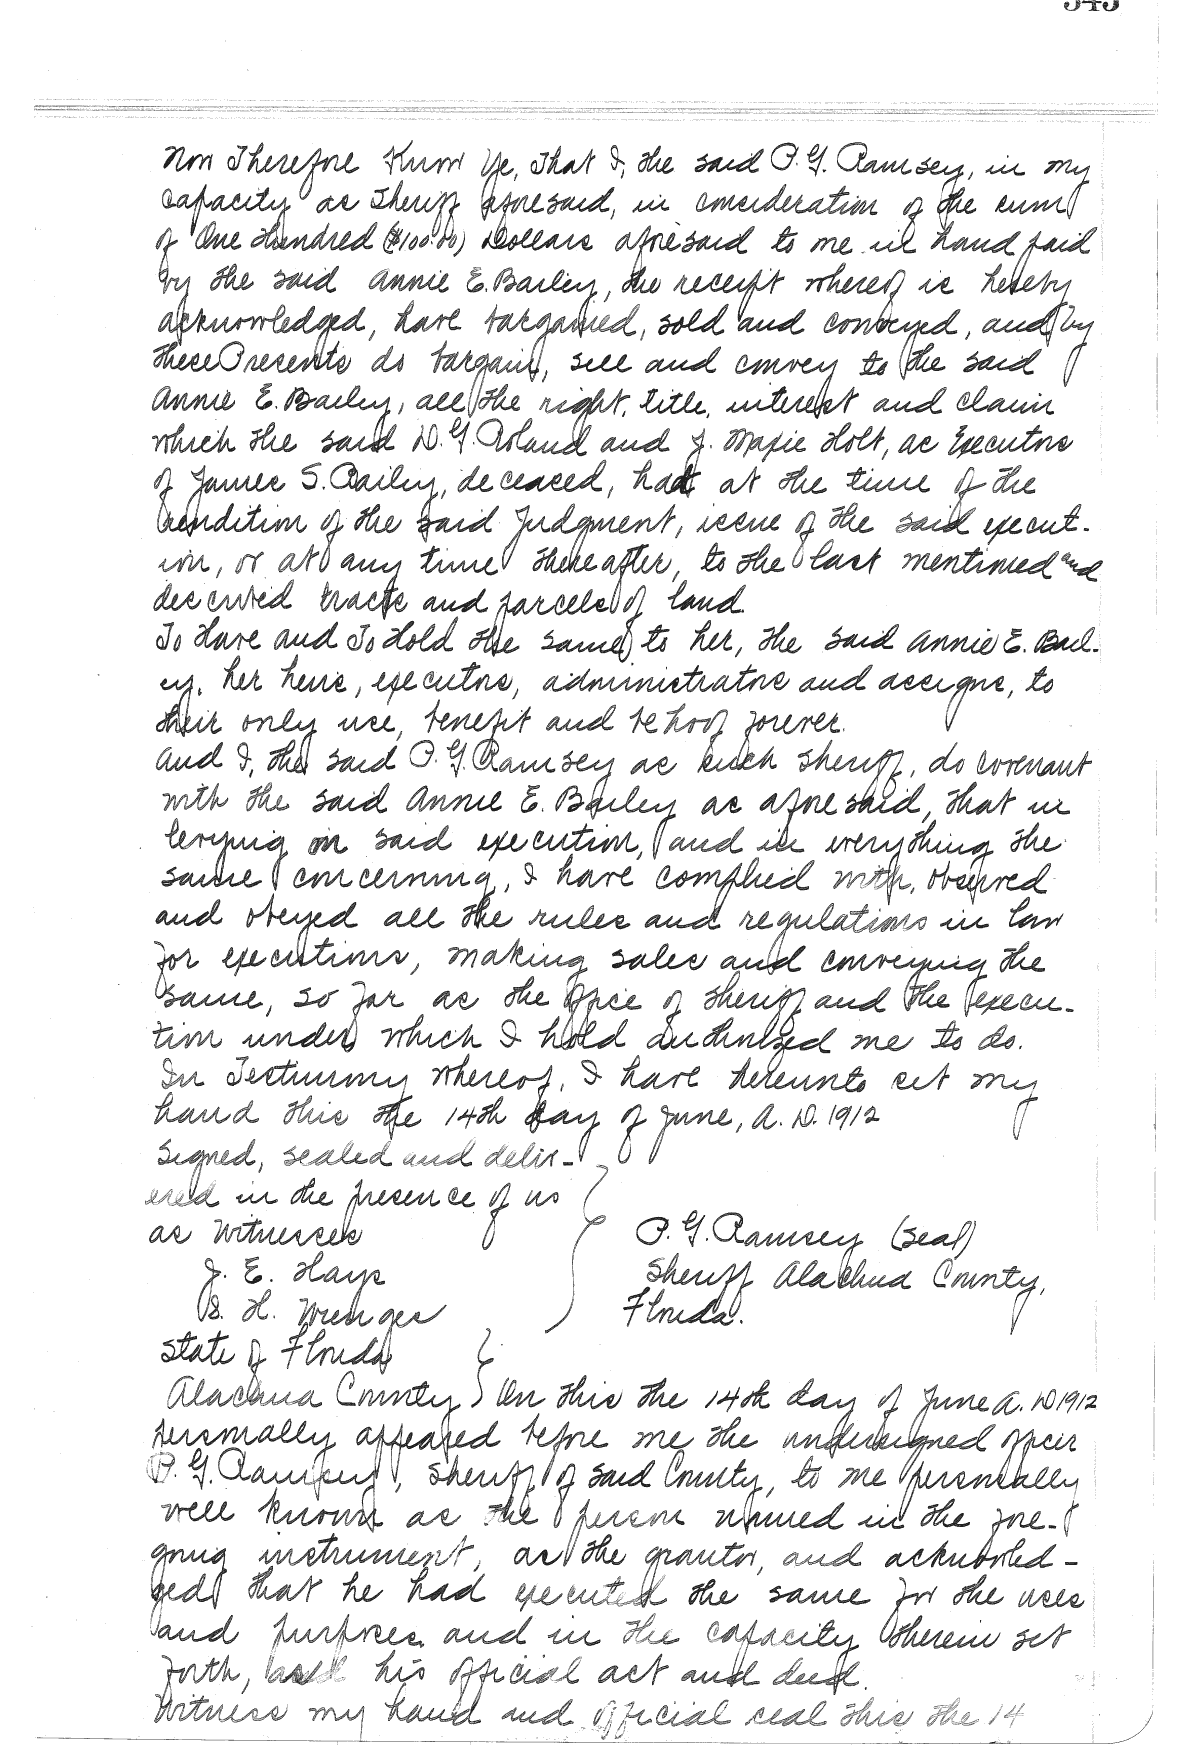 545
Now Therefore Know Ye, That I, the said P. G. Ramsey, in my
capacity as Sheriff aforesaid, in consideration of the sum
of One Hundred ($100.00) Dollars aforesaid to me in hand paid
by the said Annie E. Bailey, the receipt whereof is hereby
acknowledged, have bargained, sold and conveyed, and by
these Presents do bargain, sell and convey to the said
Annie E. Bailey, all the right, title, interest and claim
which the said D. G. Roland and J. Maxie Holt, as Executors
of James S. Bailey, deceased, had at the time of the
rendition of the said Judgment, issue of the said execut-
ion, or at any time thereafter, to the last mentioned and
described tracts and parcels of land.
To Have and To Hold the same to her, the said Annie E. Bail-
ey, her heirs, executors, administrators and assigns, to
their only use, benefit and behoof forever.
And I, the said P. G. Ramsey as such Sheriff, do covenant
with the said Annie E. Bailey as aforesaid, that in
levying on said execution, and in everything the
same concerning, I have complied with, observed
and obeyed all the rules and regulations in law
for executions, making sales and conveying the
same, so far as the office of Sheriff and the execu-
tion under which I hold authorized me to do.
In Testimony whereof, I have hereunto set my
hand this the 14th day of June, A. D. 1912
Signed, sealed and deliv-
ered in the presence of us
as Witnesses
P. G. Ramsey (Seal)
J. E. Hays
Sheriff Alachua County,
S. H. Wienges
Florida.
State of Florida
Alachua County } On this the 14th day of June A. D. 1912
personally appeared before me the undersigned officer
P. G. Ramsey, Sheriff of said County, to me personally
well known as the person named in the fore-
going instrument, as the grantor, and acknowled-
ged that he had executed the same for the uses
and purposes and in the capacity therein set
forth, as his official act and deed.
Witness my hand and official seal this the 14